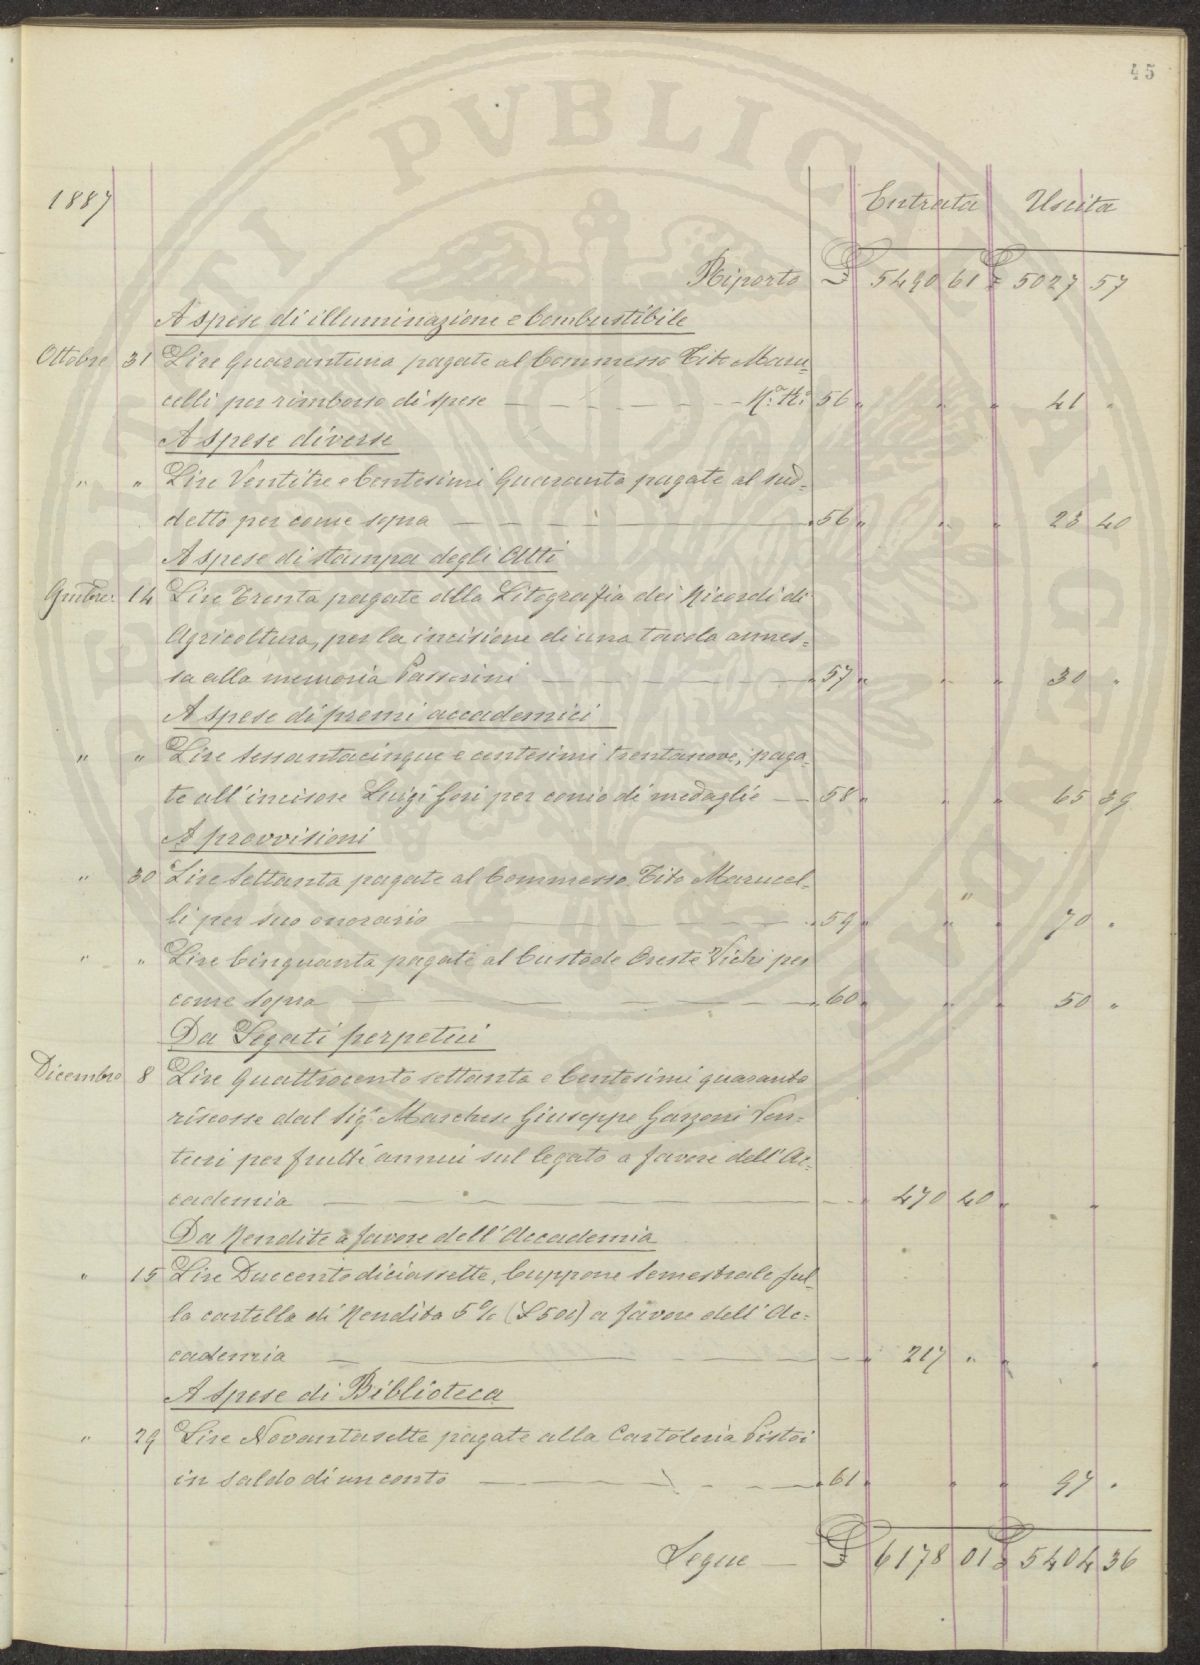 45
1887 Entrata Uscita
Riporto £ 5490 61 £ 5027 57
A spese di illuminazione e Combustibile
Ottobre 31 Lire Quarantuna pagate al Commesso Tito Maru=
celli per rimborso di spese — N.° R.° 56 " " " 41 "
A spese diverse
" " Lire Ventitre e Centesimi Quaranta pagate al sud=
detto per come sopra — " 56 " " " 23 40
A spese di stampa degli Atti
9mbre: 14 Lire Trenta pagate alla Litografia dei Ricordi di
Agricoltura, per la incisione di una tavola annes=
sa alla memoria Passerini — " 57 " " " 30 "
A spese di premi accademici
" " Lire Sessantacinque e centesimi trentanove, paga=
te all'incisore Luigi Gori per conio di medaglie — 58 " " " 65 39
A provvisioni
" 30 Lire Settanta pagate al Commesso Tito Marucel=
li per suo onorario — " 59 " " " 70 "
" " Lire Cinquanta pagate al Custode Oreste Vichi per
come sopra — " 60 " " " 50 "
Da Legati perpetui
Dicembre 8 Lire Quattrocento settanta e Centesimi quaranta
riscosse dal Sig.r Marchese Giuseppe Garzoni Ven=
turi per frutti annui sul legato a favore dell'Ac=
cademia — " 470 40 " "
Da Rendite a favore dell'Accademia
" 15 Lire Duecentodiciassette, Cuppone Semestrale sul=
la cartella di Rendita 5 % (£500) a favore dell'Ac=
cademia — " 217 " " "
A spese di Biblioteca
" 29 Lire Novantasette pagate alla Cartoleria Pistoi
in saldo di un conto — " 61 " " " 97 "
Segue — £ 6178 01 £ 5404 36